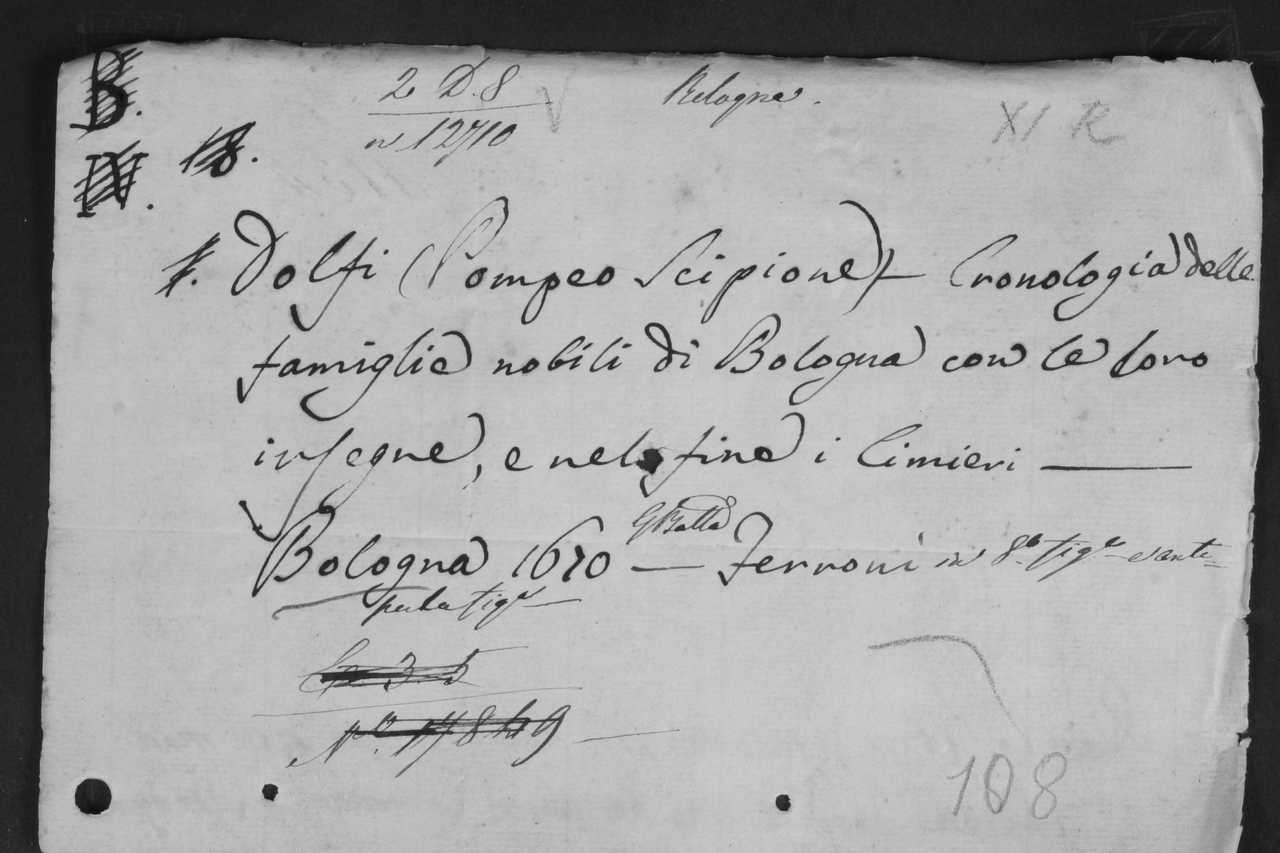 B.
2 D. 8
n 12710
Bologna.
XI R
IV. 18.
Dolfi (Pompeo Scipione) — Cronologia delle
famiglie nobili di Bologna con le loro
insegne, e nel fine i Cimieri —
Bologna 1670 — G Batta Ferroni in 8° fig° e ante=
porta fig°
N° 17849
108